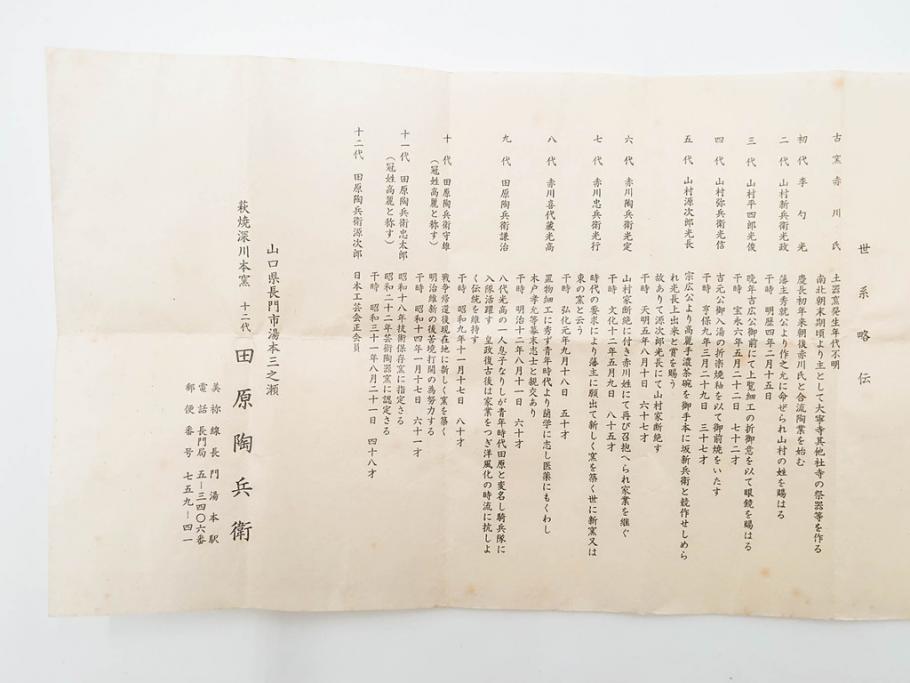 世系略伝
古窯 赤川氏 土器窯発生年代不明
南北朝末期頃より主として大寧寺其他社寺の祭器等を作る
初代 李勺光 慶長初年来朝後赤川氏と合流陶業を始む
二代 山村新兵衛光政 藩主秀就公より作之允に命ぜられ山村の姓を賜はる
干時 明暦四年二月十五日
三代 山村平四郎光俊 晩年吉広公御前にて上覧細工の折御意を以て眼鏡を賜はる
干時 宝永六年五月二十二日 七十二才
四代 山村弥兵衛光信 吉元公御入湯の折楽焼秞を以て御前焼をいたす
干時 亨保九年三月二十九日 三十七才
五代 山村源次郎光長 宗広公より高麗手濃茶碗を御手本に坂新兵衛と競作せしめら
れ光長上出来と賞を賜う
故ありて源次郎光長にて山村家断絶す
干時 天明五年八月十日 六十七才
六代 赤川陶兵衛光定 山村家断絶に付き赤川姓にて再び召抱へられ家業を継ぐ
干時 文化十二年五月九日 八十五才
七代 赤川忠兵衛光行 時代の要求により藩主に願出て新しく窯を築く世に新窯又は
東の窯と云う
干時 弘化元年九月十八日 五十才
八代 赤川喜代蔵光高 置物細工に秀ず青年時代より蘭学に志し医薬にもくわし
木戸孝允等幕末志士と親交あり
干時 明治十二年八月十一日 六十才
九代 田原陶兵衛謙治 八代光高の一人息子なりしが青年時代田原と変名し騎兵隊に
入隊活躍す 皇政復古後は家業をつぎ洋風化の時流に抗しよ
く伝統を維持す
干時 昭和九年十一月十七日 八十才
十代 田原陶兵衛守雄 戦争帰還後現在地に新しく窯を築く
(冠姓高麗と称す) 明治維新の後苦境打開の為努力する
干時 昭和十四年一月十七日 六十一才
十一代 田原陶兵衛忠太郎 昭和十八年技術保存窯に指定さる
(冠姓高麗と称す) 昭和二十二年芸術陶器窯に認定さる
干時 昭和三十一年八月二十一日 四十八才
十二代 田原陶兵衛源次郎 日本工芸会正会員
山口県長門市湯本三之瀬
萩焼深川本窯 十二代 田原陶兵衛
美祢線長門湯本駅
電話長門局 五―三四〇六番
郵便番号 七五九―四一